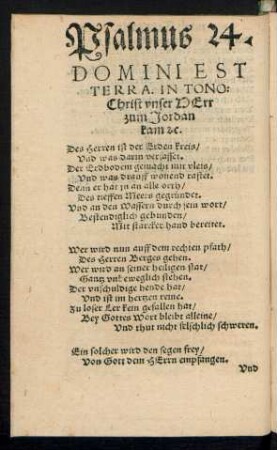 Psalmus 24.
DOMINI EST
TERRA. IN TONO:
Christ vnser HErr
zum Jordan
kam ꝛc.
Des Herren ist der Erden kreis/
Vnd was darin verfasset.
Der Erdbodem gemacht mit vleis/
Vnd was drauff wonend rastet.
Denn er hat jn an alle orth/
Des tieffen Meers gegründet.
Vnd an den Wassern durch sein wort/
Bestendiglich gebunden/
Mit starcker hand bereitet.
Wer wird nun auff dem rechten pfath/
Des Herren Berges gehen.
Wer wird an seiner heiligen stat/
Gantz vnbeweglich stehen.
Der vnschuldige hende hat/
Vnd ist im hertzen reine.
Zu loser Ler kein gefallen hat/
Bey Gottes Wort bleibt alleine/
Vnd thut nicht felschlich schweren.
Ein solcher wird den segen frey/
Von Gott dem HErrn empfangen.
Vnd